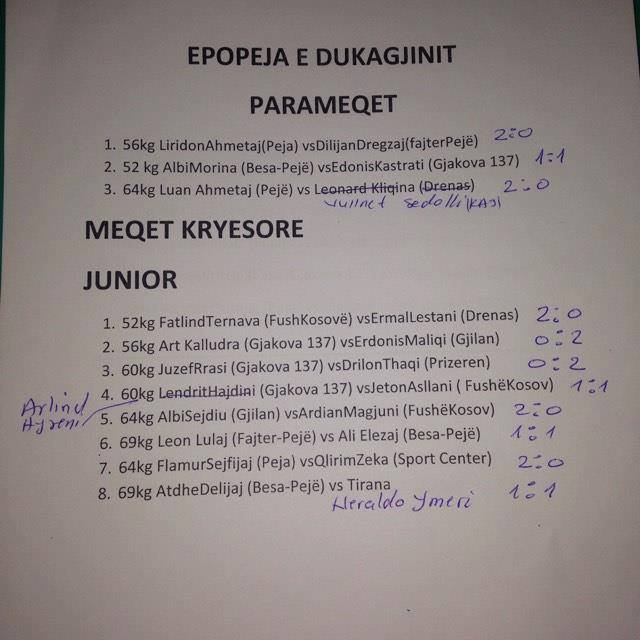 EPOPEJA E DUKAGJINIT
PARAMEQET
1. 56kg LiridonAhmetaj(Peja) vsDilijanDregzaj(fajterPejë) 2:0
2. 52 kg AlbiMorina (Besa-Pejë) vsEdonisKastrati (Gjakova 137) 1:1
3. 64kg Luan Ahmetaj (Pejë) vs Leonard Kliqina (Drenas) 2:0
MEQET KRYESORE
JUNIOR
1. 52kg FatlindTernava (FushKosovë) vsErmalLestani (Drenas) 2:0
2. 56kg Art Kalludra (Gjakova 137) vsErdonisMaliqi (Gjilan) 0:2
3. 60kg JuzefRrasi (Gjakova 137) vsDrilonThaqi (Prizeren) 0:2
Arlind
4. 60kg LendritHajdini (Gjakova 137) vsJetonAsllani ( FushëKosov) 1:1
5. 64kg AlbiSejdiu (Gjilan) vsArdianMagjuni (FushëKosov) 2:0
6. 69kg Leon Lulaj (Fajter-Pejë) vs Ali Elezaj (Besa-Pejë) 1:1
7. 64kg FlamurSejfijaj (Peja) vsQlirimZeka (Sport Center) 2:0
8. 69kg AtdheDelijaj (Besa-Pejë) vs Tirana 1:1
Heraldo Ymeri